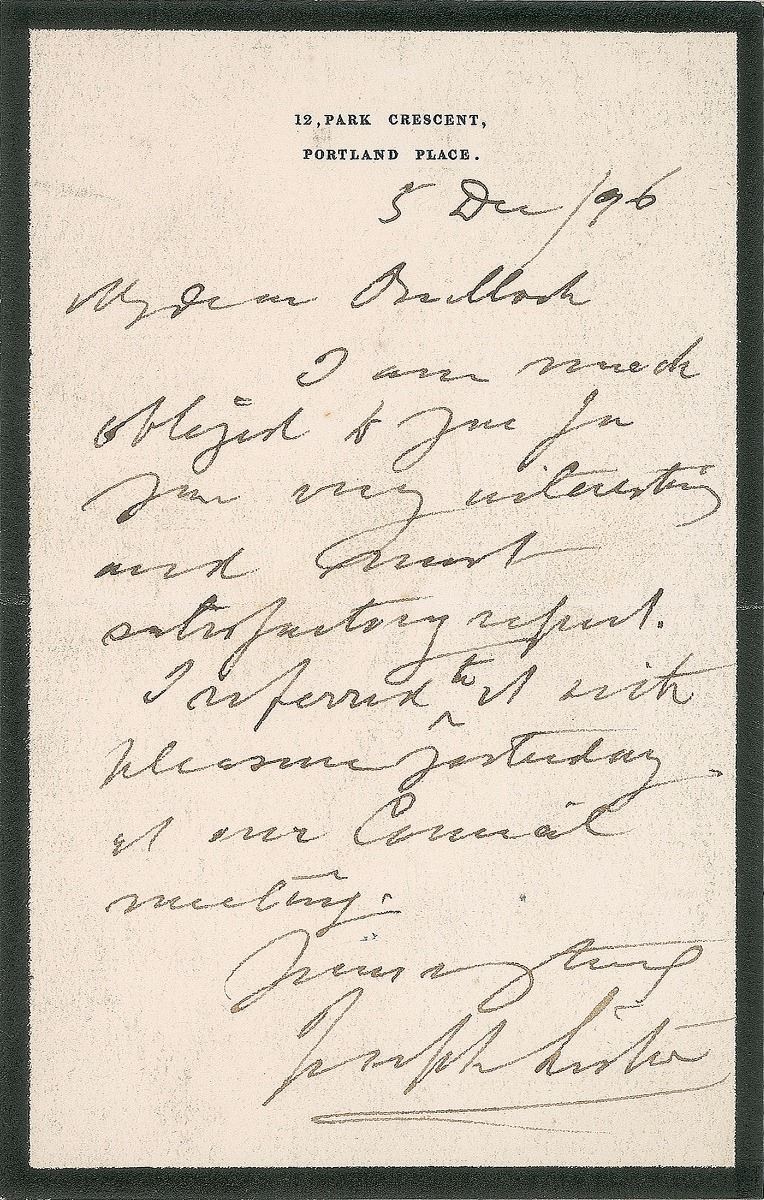 12, PARK CRESCENT,
PORTLAND PLACE.
5 Dec /96
My dear Bulloch
I am much
obliged to you for
your very interesting
and most
satisfactory report.
I referred to it with
pleasure yesterday
at our Council
meeting.
Very truly
Joseph Lister